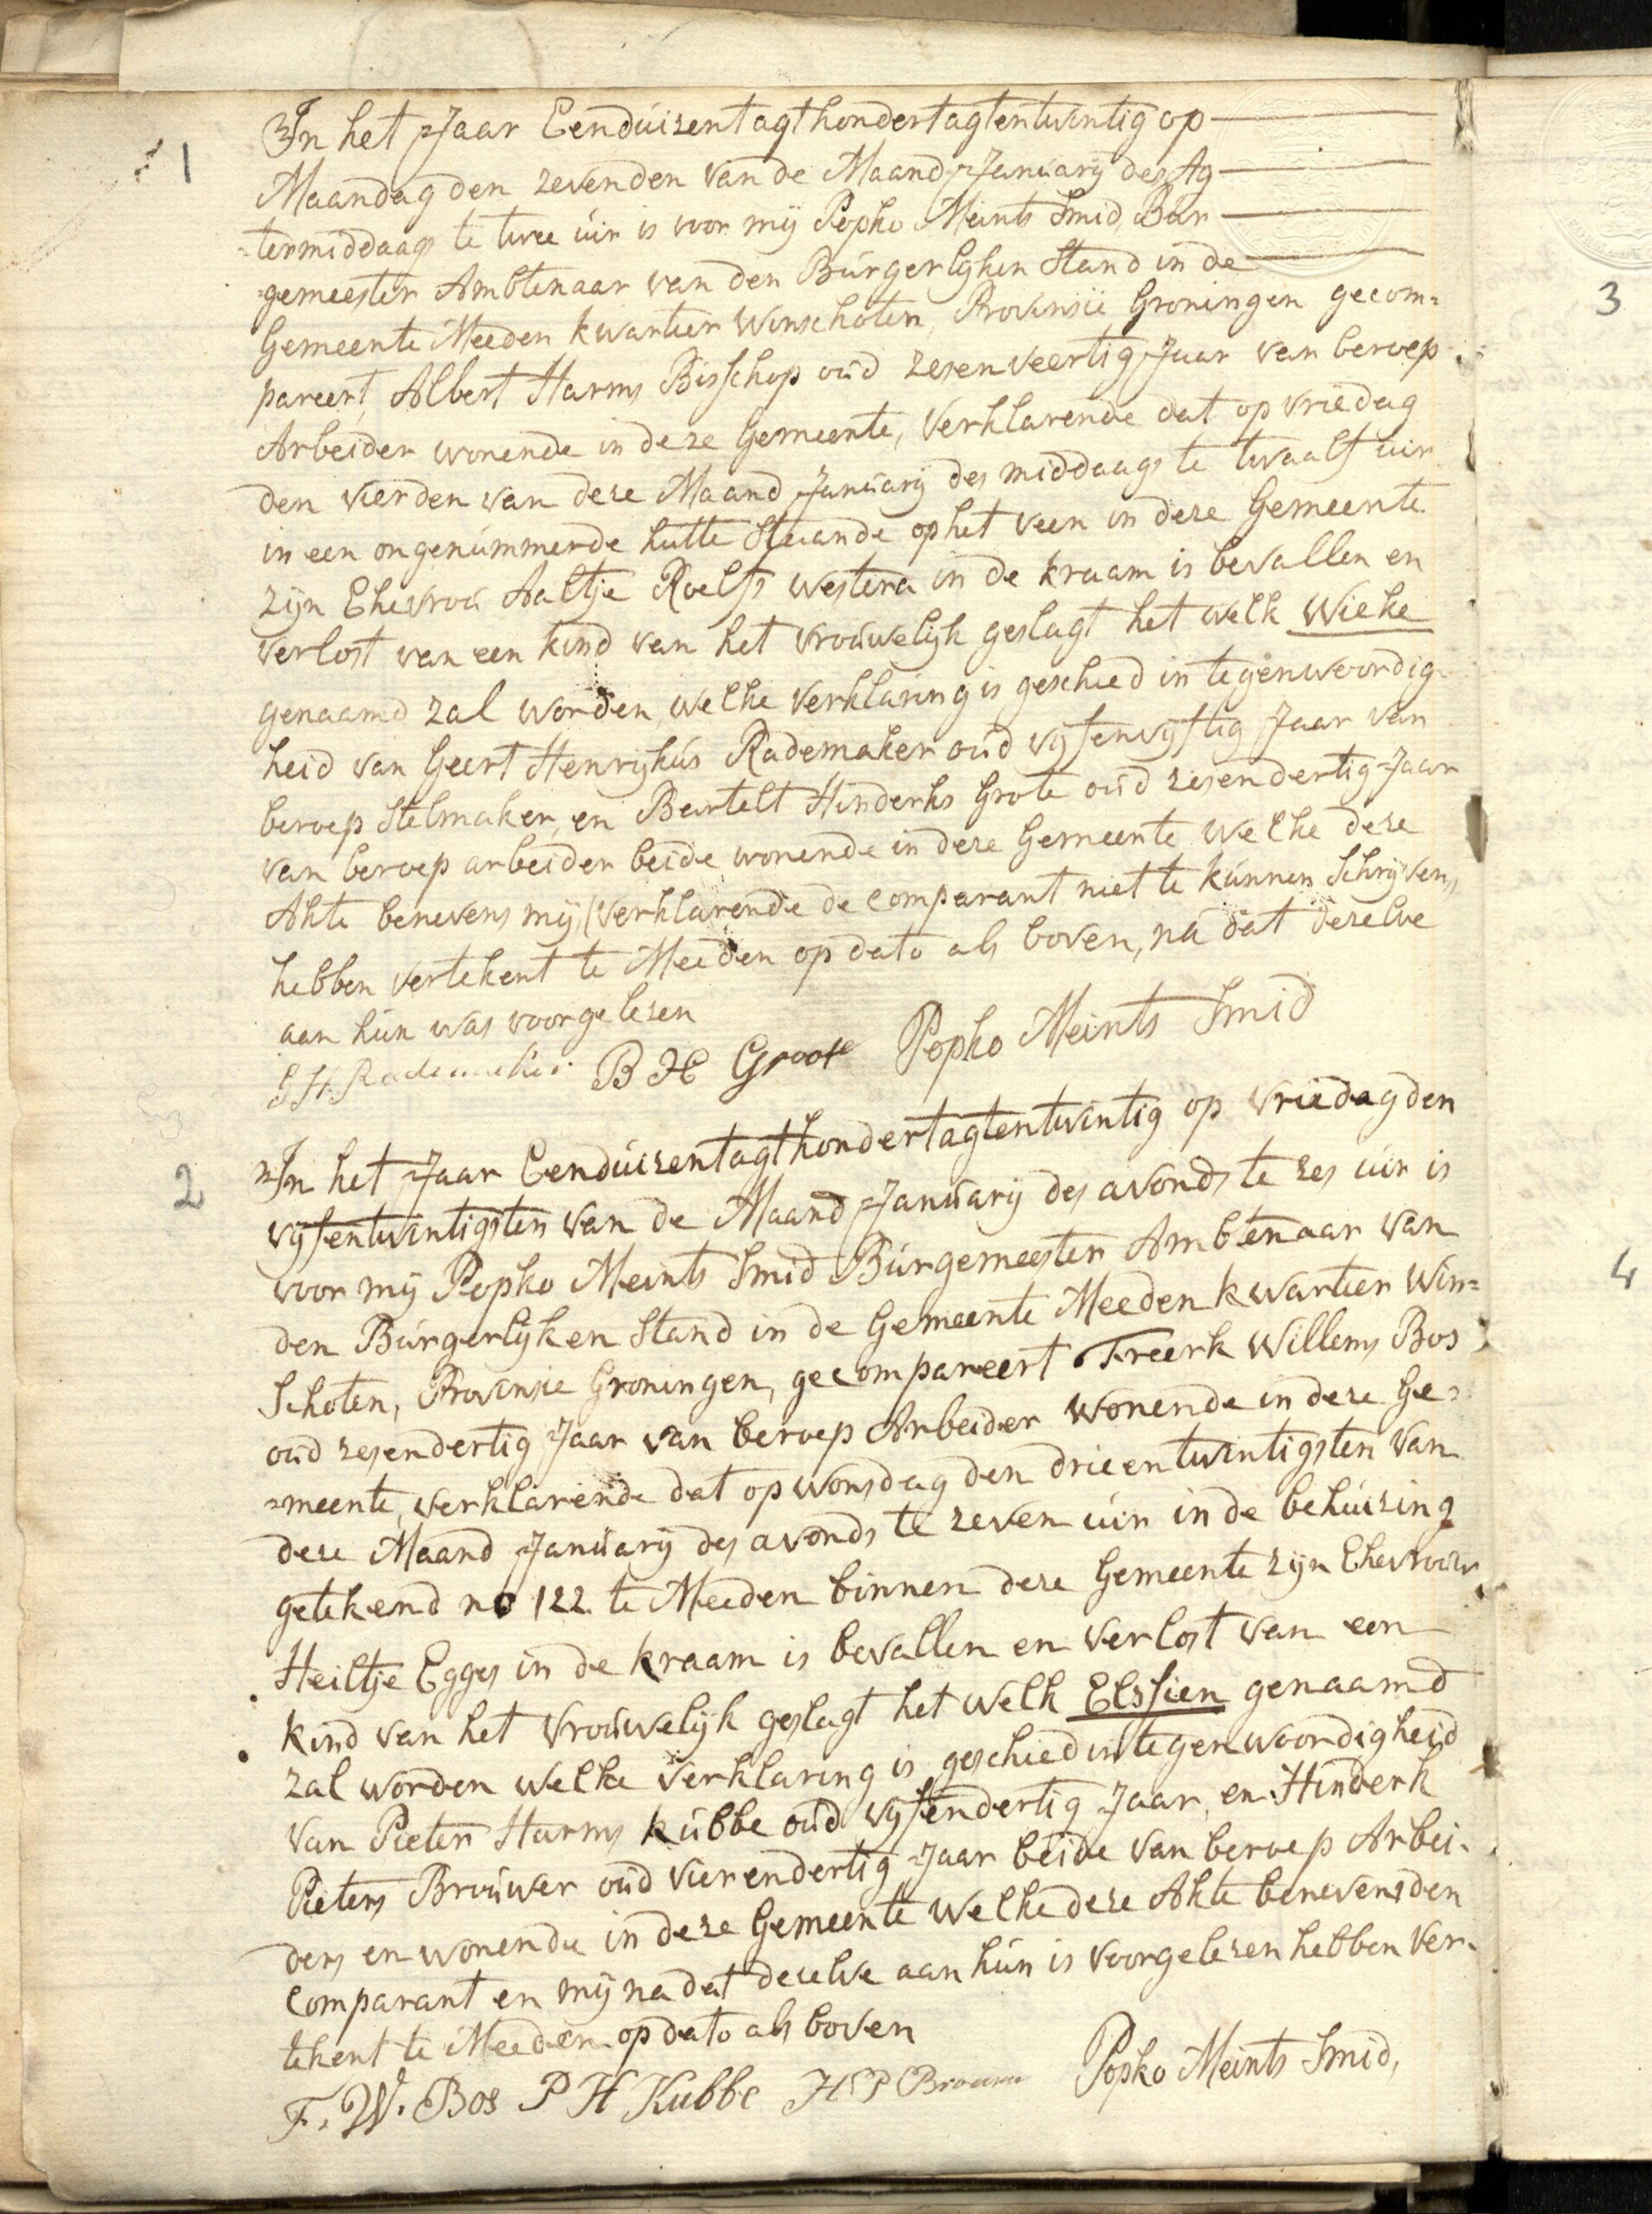 1
In het Jaar Eenduizentagthondertagtentwintig op
Maandag den zevenden van de Maand January des Ag
termiddaags te twee uir is voor mij Popko Meints Smid, Bur
gemeester Ambtenaar van den Burgerlyken Stand in de
Gemeente Meeden kwartier Winschoten, Provinsie Groningen gecom=
pareert, Albert Harms Bisschop oud zesenveertig Jaar van beroep
Arbeider wonende in deze Gemeente, Verklarende dat op vriedag
den vierden van deze Maand January des middaags te twaalf uir
in een ongenummerde hutte staande op het veen in deze Gemeente
zijn Ehevrou Aaltje Roelfs Westera in de kraam is bevallen en
verlost van een kind van het vrouwelijk geslagt het welk Wieke
genaamd zal worden, welke verklaring is geschied in tegenwoordig
heid van Geert Henrykus Rademaker oud vyfenvyftig Jaar van
beroep Stelmaker, en Bartelt Hinderks Grote oud zesendertig Jaar
van beroep arbeider beide wonende in deze Gemeente welke deze
Akte benevens mij, (verklarende de comparant niet te kunnen Schryven,
hebben vertekent te Meeden op dato als boven, na dat dezelve
aan hun was voorgelezen
G H Rademaker B H Groote Popko Meints Smid
2
In het Jaar Eenduizentagthondertagtentwintig op vriedag den
vyfentwintigsten van de Maand January des avonds te zes uir is
voor mij Popko Meints Smid Burgemeester Ambtenaar van
den Burgerlyken Stand in de Gemeente Meeden kwartier Win=
Schoten, Provinsie Groningen, gecompareert Freerk Willems Bos
oud zesendertig Jaar van beroep Arbeider wonende in deze Ge=
=meente, verklarende dat op wonsdag den drieentwintigsten van
deze Maand January des avonds te zeven uir in de behuizing
getekend no 122 te Meeden binnen deze Gemeente zijn Ehevrouw
Heiltje Egges in de kraam is bevallen en verlost van een
kind van het vrouwelijk geslagt het welk Elssien genaamd
zal worden welke verklaring is geschied in tegenwoordigheid
van Pieter Harms Kubbe oud vyfendertig Jaar, en Hinderk
Pieters Brouwer oud vierendertig Jaar beide van beroep Arbei=
ders en wonende in deze Gemeente welke deze Akte benevens den
Comparant en mij na dat dezelve aan hun is voorgelezen hebben ver=
tekent te Meeden op dato als boven
F. W. Bos P H Kubbe H P Brouwer Popko Meints Smid,
3
4